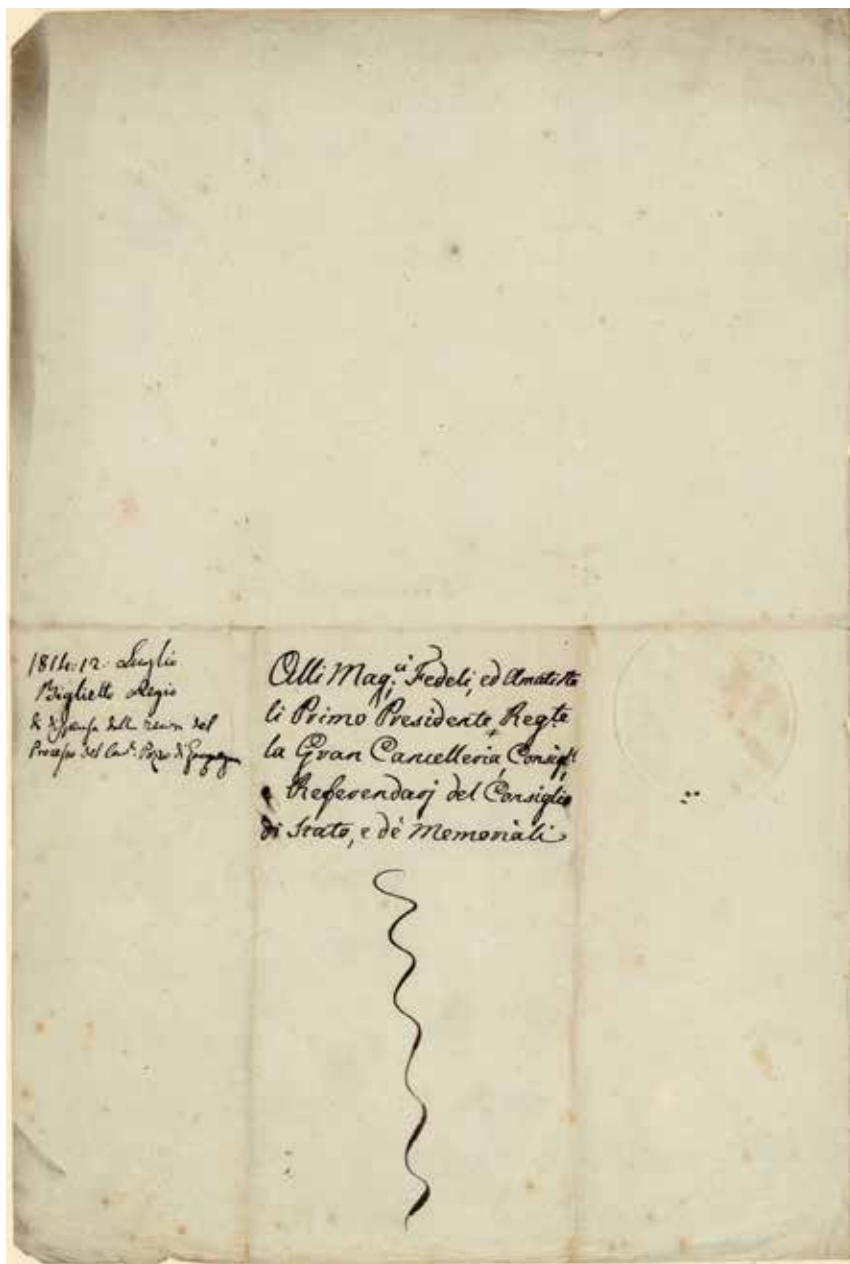 1814. 12. Luglio
Biglietto Regio
di dispensa dalla del
Processo del Cav.e Pozzo di
Alli Mag.ci Fedeli, ed Amatissi
li Primo Presidente, Reg.te
la Gran Cancelleria, Consigl.ri
e Referendarj del Consiglio
di Stato, e de' Memoriali